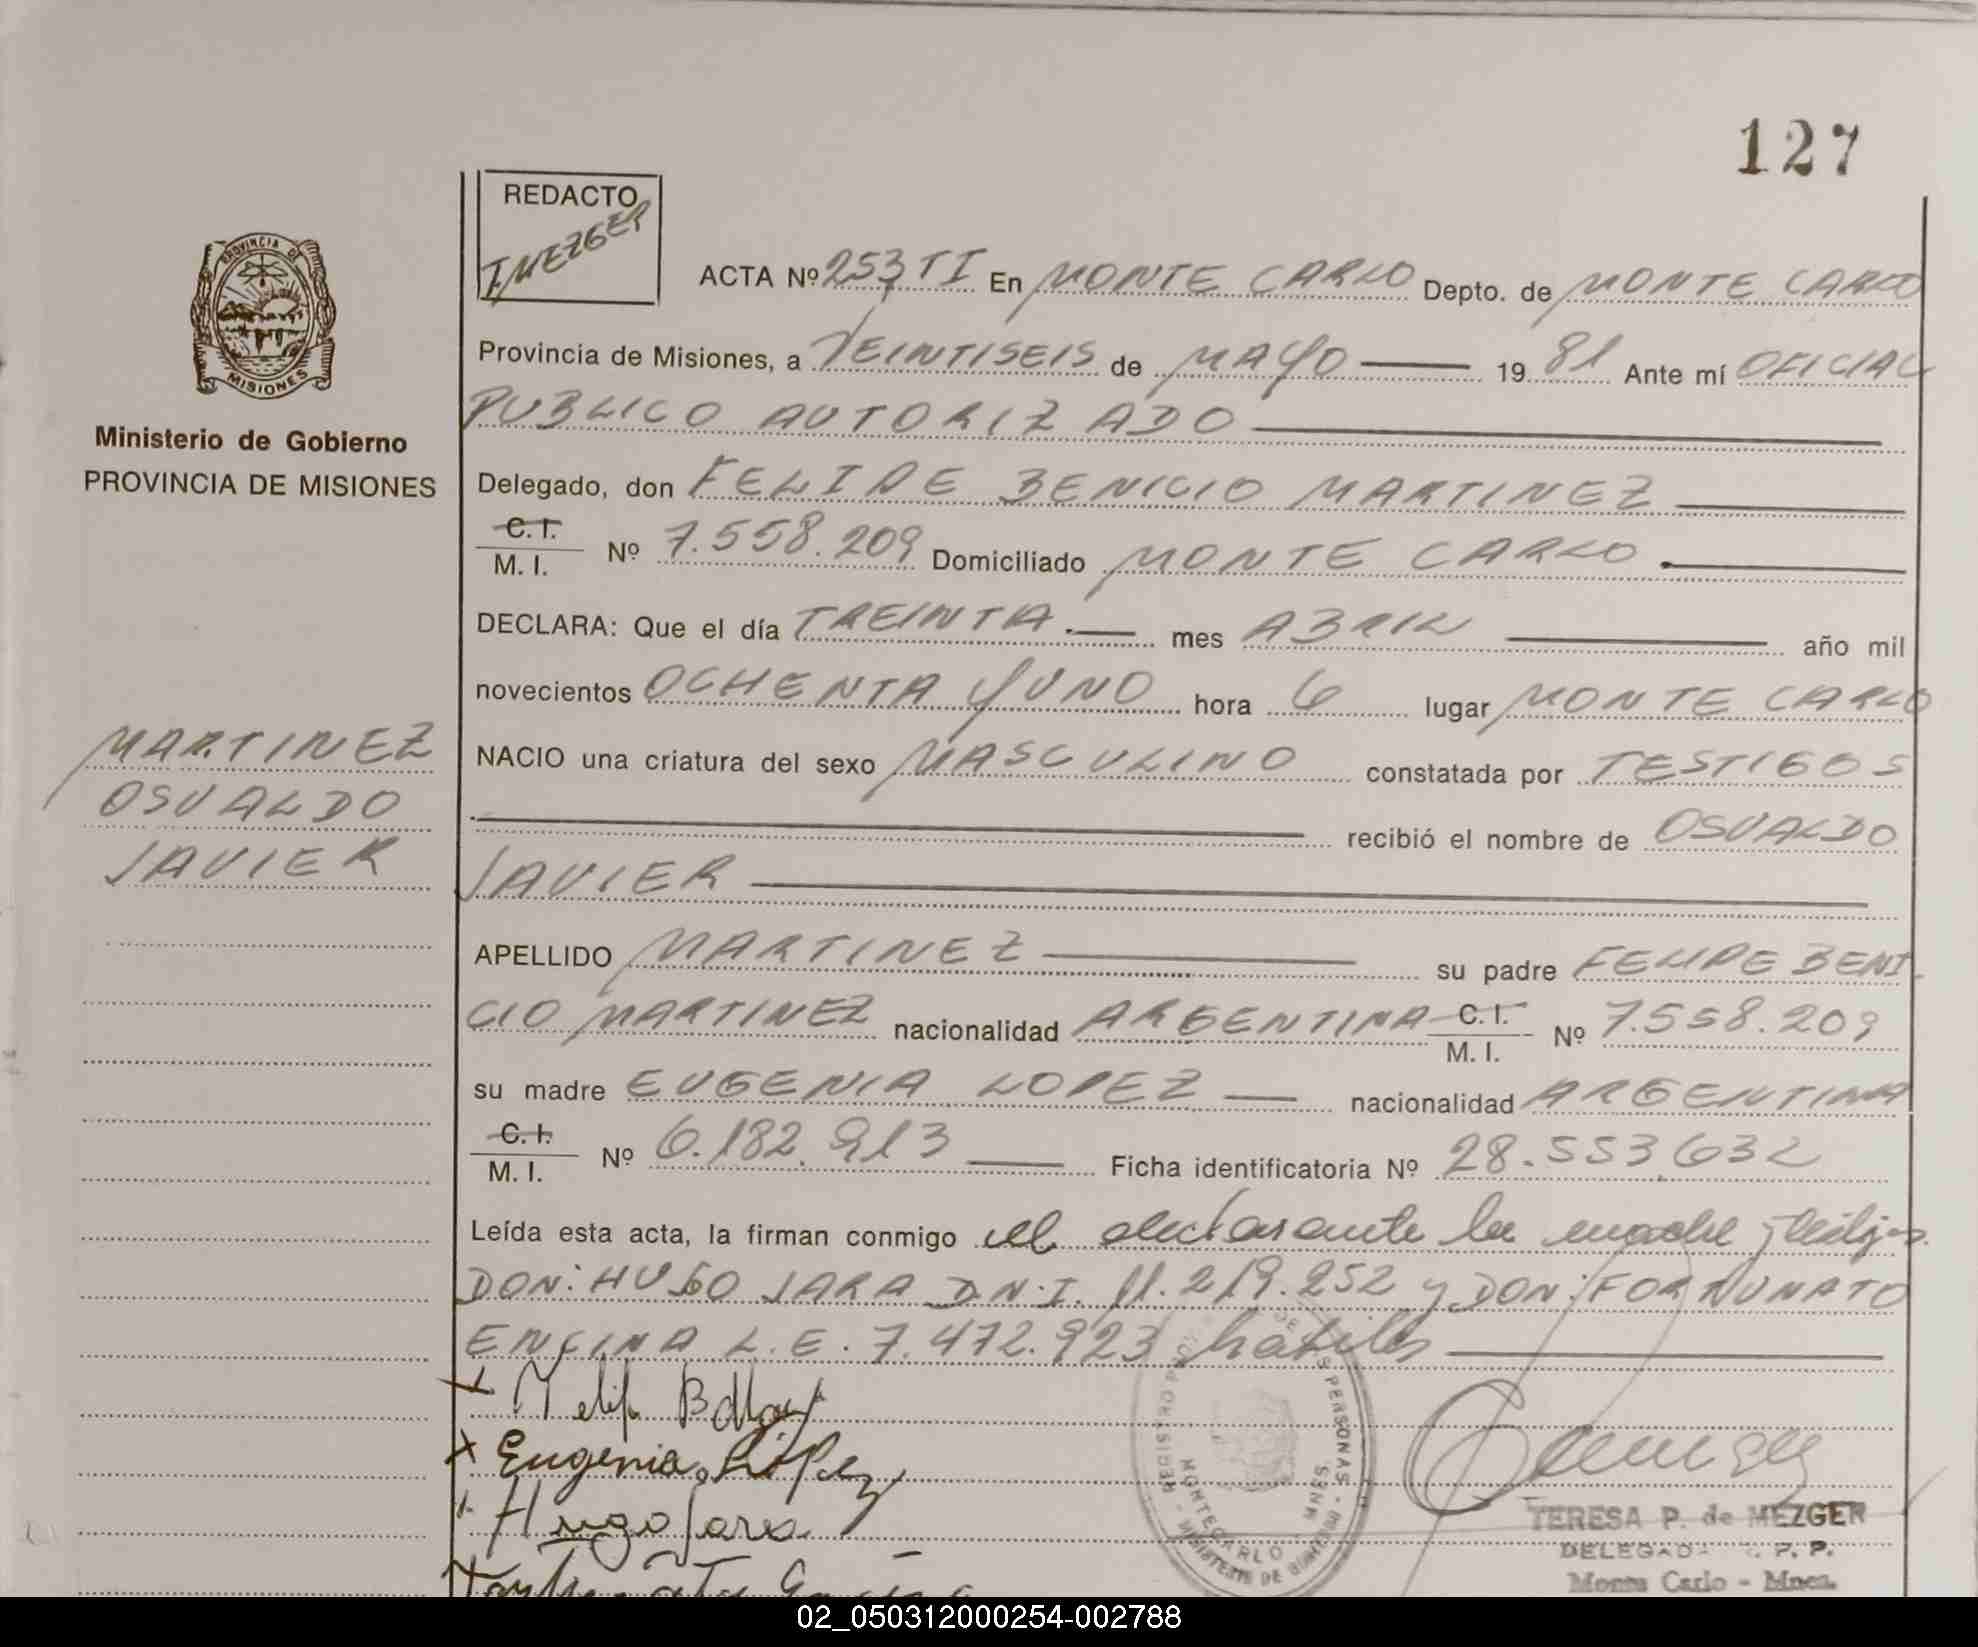 127
REDACTO
T. MEZGER
ACTA Nº 253 TI En MONTE CARLO Depto. de MONTE CARLO
PROVINCIA DE
MISIONES
Provincia de Misiones, a VEINTISEIS de MAYO 19 81 Ante mí OFICIAL
PUBLICO AUTORIZADO
Ministerio de Gobierno
PROVINCIA DE MISIONES
Delegado, don FELIPE BENICIO MARTINEZ
C. I.
M. I. Nº 7.558.209 Domiciliado MONTE CARLO
DECLARA: Que el día TREINTA mes ABRIL año mil
novecientos OCHENTA Y UNO hora 6 lugar MONTE CARLO
MARTINEZ
OSVALDO
JAVIER
NACIO una criatura del sexo MASCULINO constatada por TESTIGOS
recibió el nombre de OSVALDO
JAVIER
APELLIDO MARTINEZ su padre FELIPE BENI-
CIO MARTINEZ nacionalidad ARGENTINA C. I.
M. I. Nº 7.558.209
su madre EUGENIA LOPEZ nacionalidad ARGENTINA
C. I.
M. I. Nº 6.182.913 Ficha identificatoria Nº 28.553.632
Leída esta acta, la firman conmigo el declarante la madre y testigos
DON: HUGO JARA D.N.I. 11.219.252 y DON: FORTUNATO
ENCINA L.E. 7.472.923 hábiles
Eugenia López
Hugo Jara
PERSONAS
MONTECARLO
MNES.
TERESA P. de MEZGER
DELEGADA R. P. P.
Monte Carlo - Mnes.
02_050312000254-002788